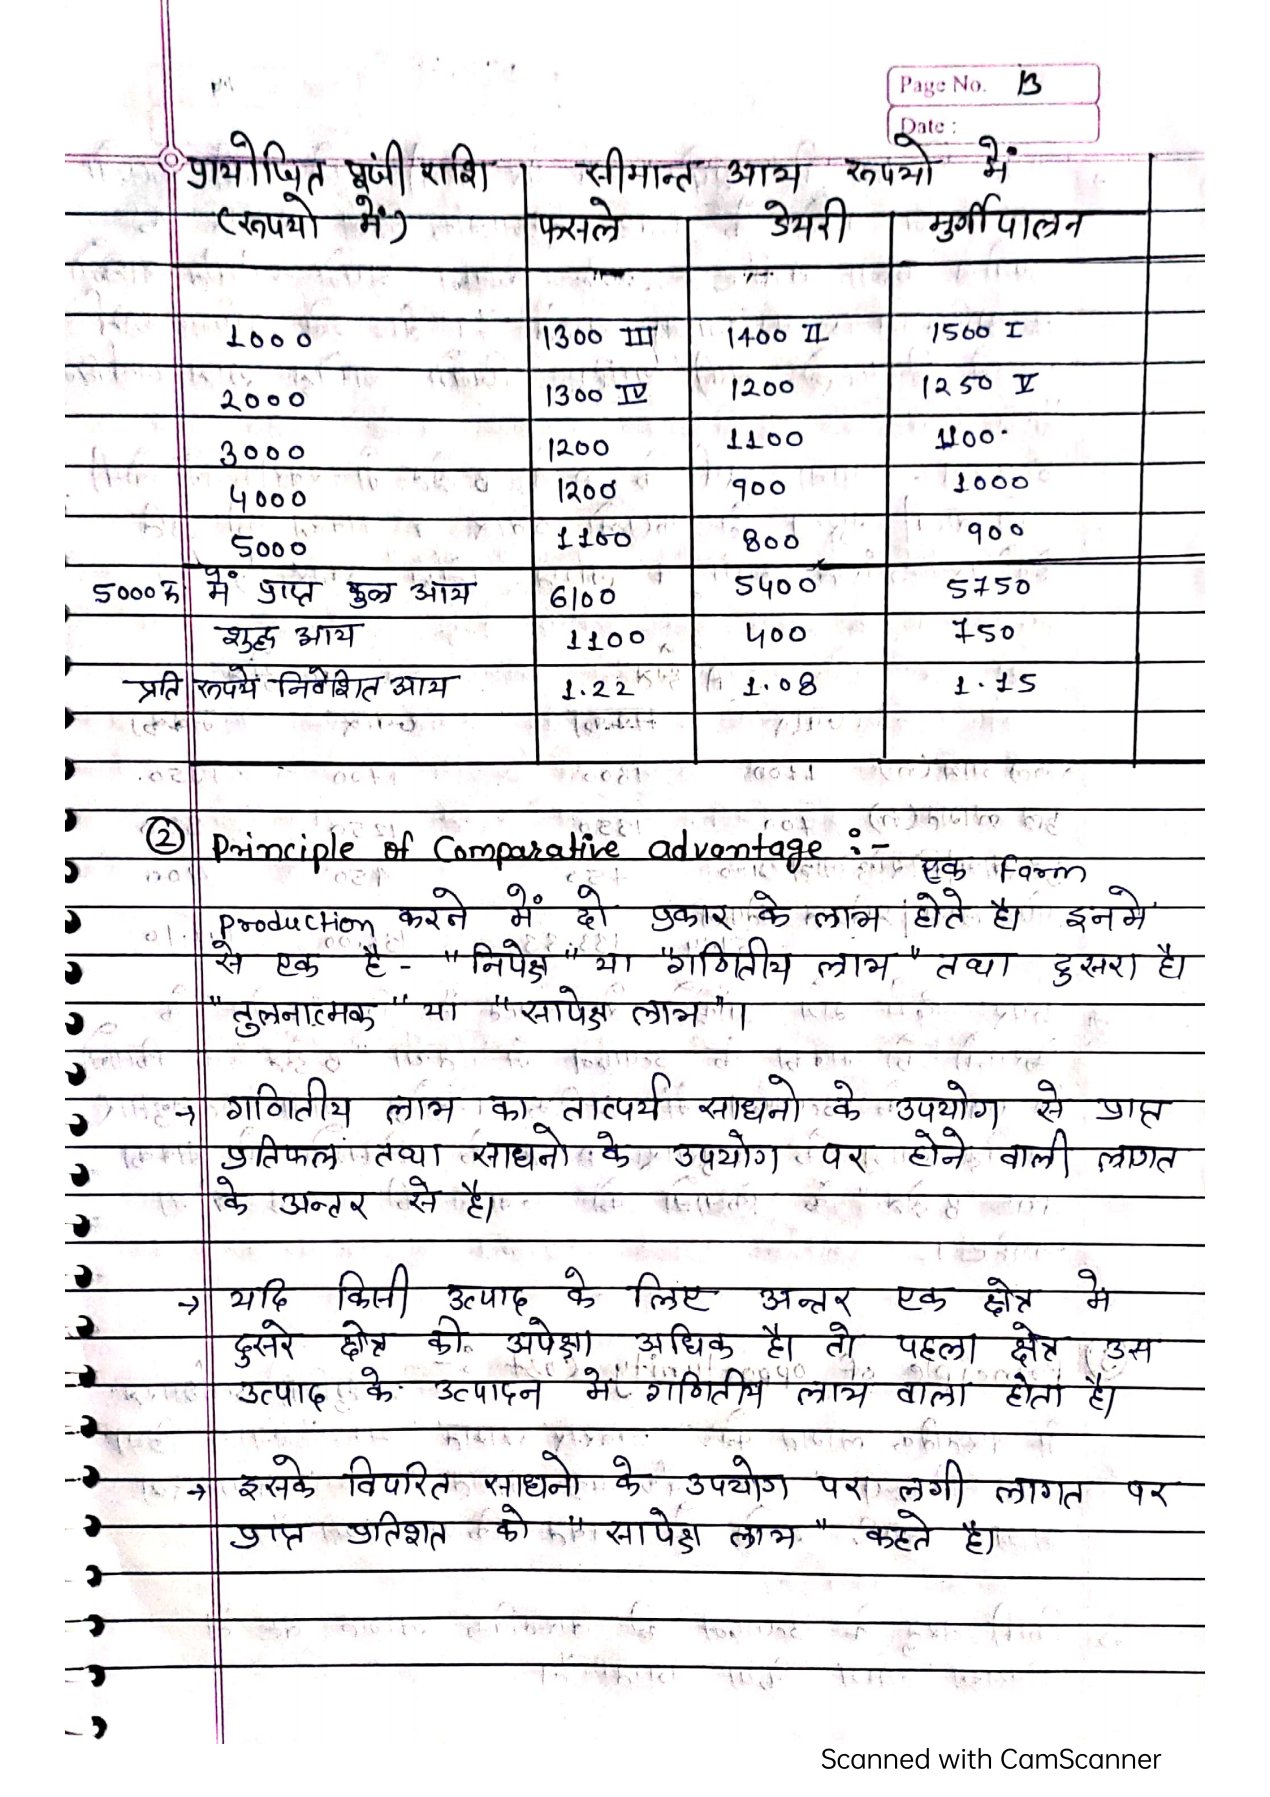 Page No. 13
Date :
प्रायोजित पूंजी राशि सीमान्त आय रूपयो में
(रूपयो में) फसले डेयरी मुर्गीपालन
1000 1300 III 1400 II 1500 I
2000 1300 IV 1200 1250 V
3000 1200 1100 1100
4000 1200 900 1000
5000 1100 800 900
5000रु में प्राप्त कुल आय 6100 5400 5750
शुद्ध आय 1100 400 750
प्रति रूपये निवेशित आय 1.22 1.08 1.15
② Principle of Comparative advantage :-
एक Farm
production करने में दो प्रकार के लाभ होते है। इनमे
से एक है - "निपेक्ष" या "गणितीय लाभ" तथा दुसरा है।
"तुलनात्मक" या "सापेक्ष लाभ"।
→ गणितीय लाभ का तात्पर्य साधनो के उपयोग से प्राप्त
प्रतिफल तथा साधनो के उपयोग पर होने वाली लागत
के अन्तर से है।
→ यदि किसी उत्पाद के लिए अन्तर एक क्षेत्र मे
दुसरे क्षेत्र की अपेक्षा अधिक है। तो पहला क्षेत्र उस
उत्पाद के उत्पादन मे गणितीय लाभ वाला होता है।
→ इसके विपरित साधनो के उपयोग पर लगी लागत पर
प्राप्त प्रतिशत को "सापेक्ष लाभ" कहते है।
Scanned with CamScanner